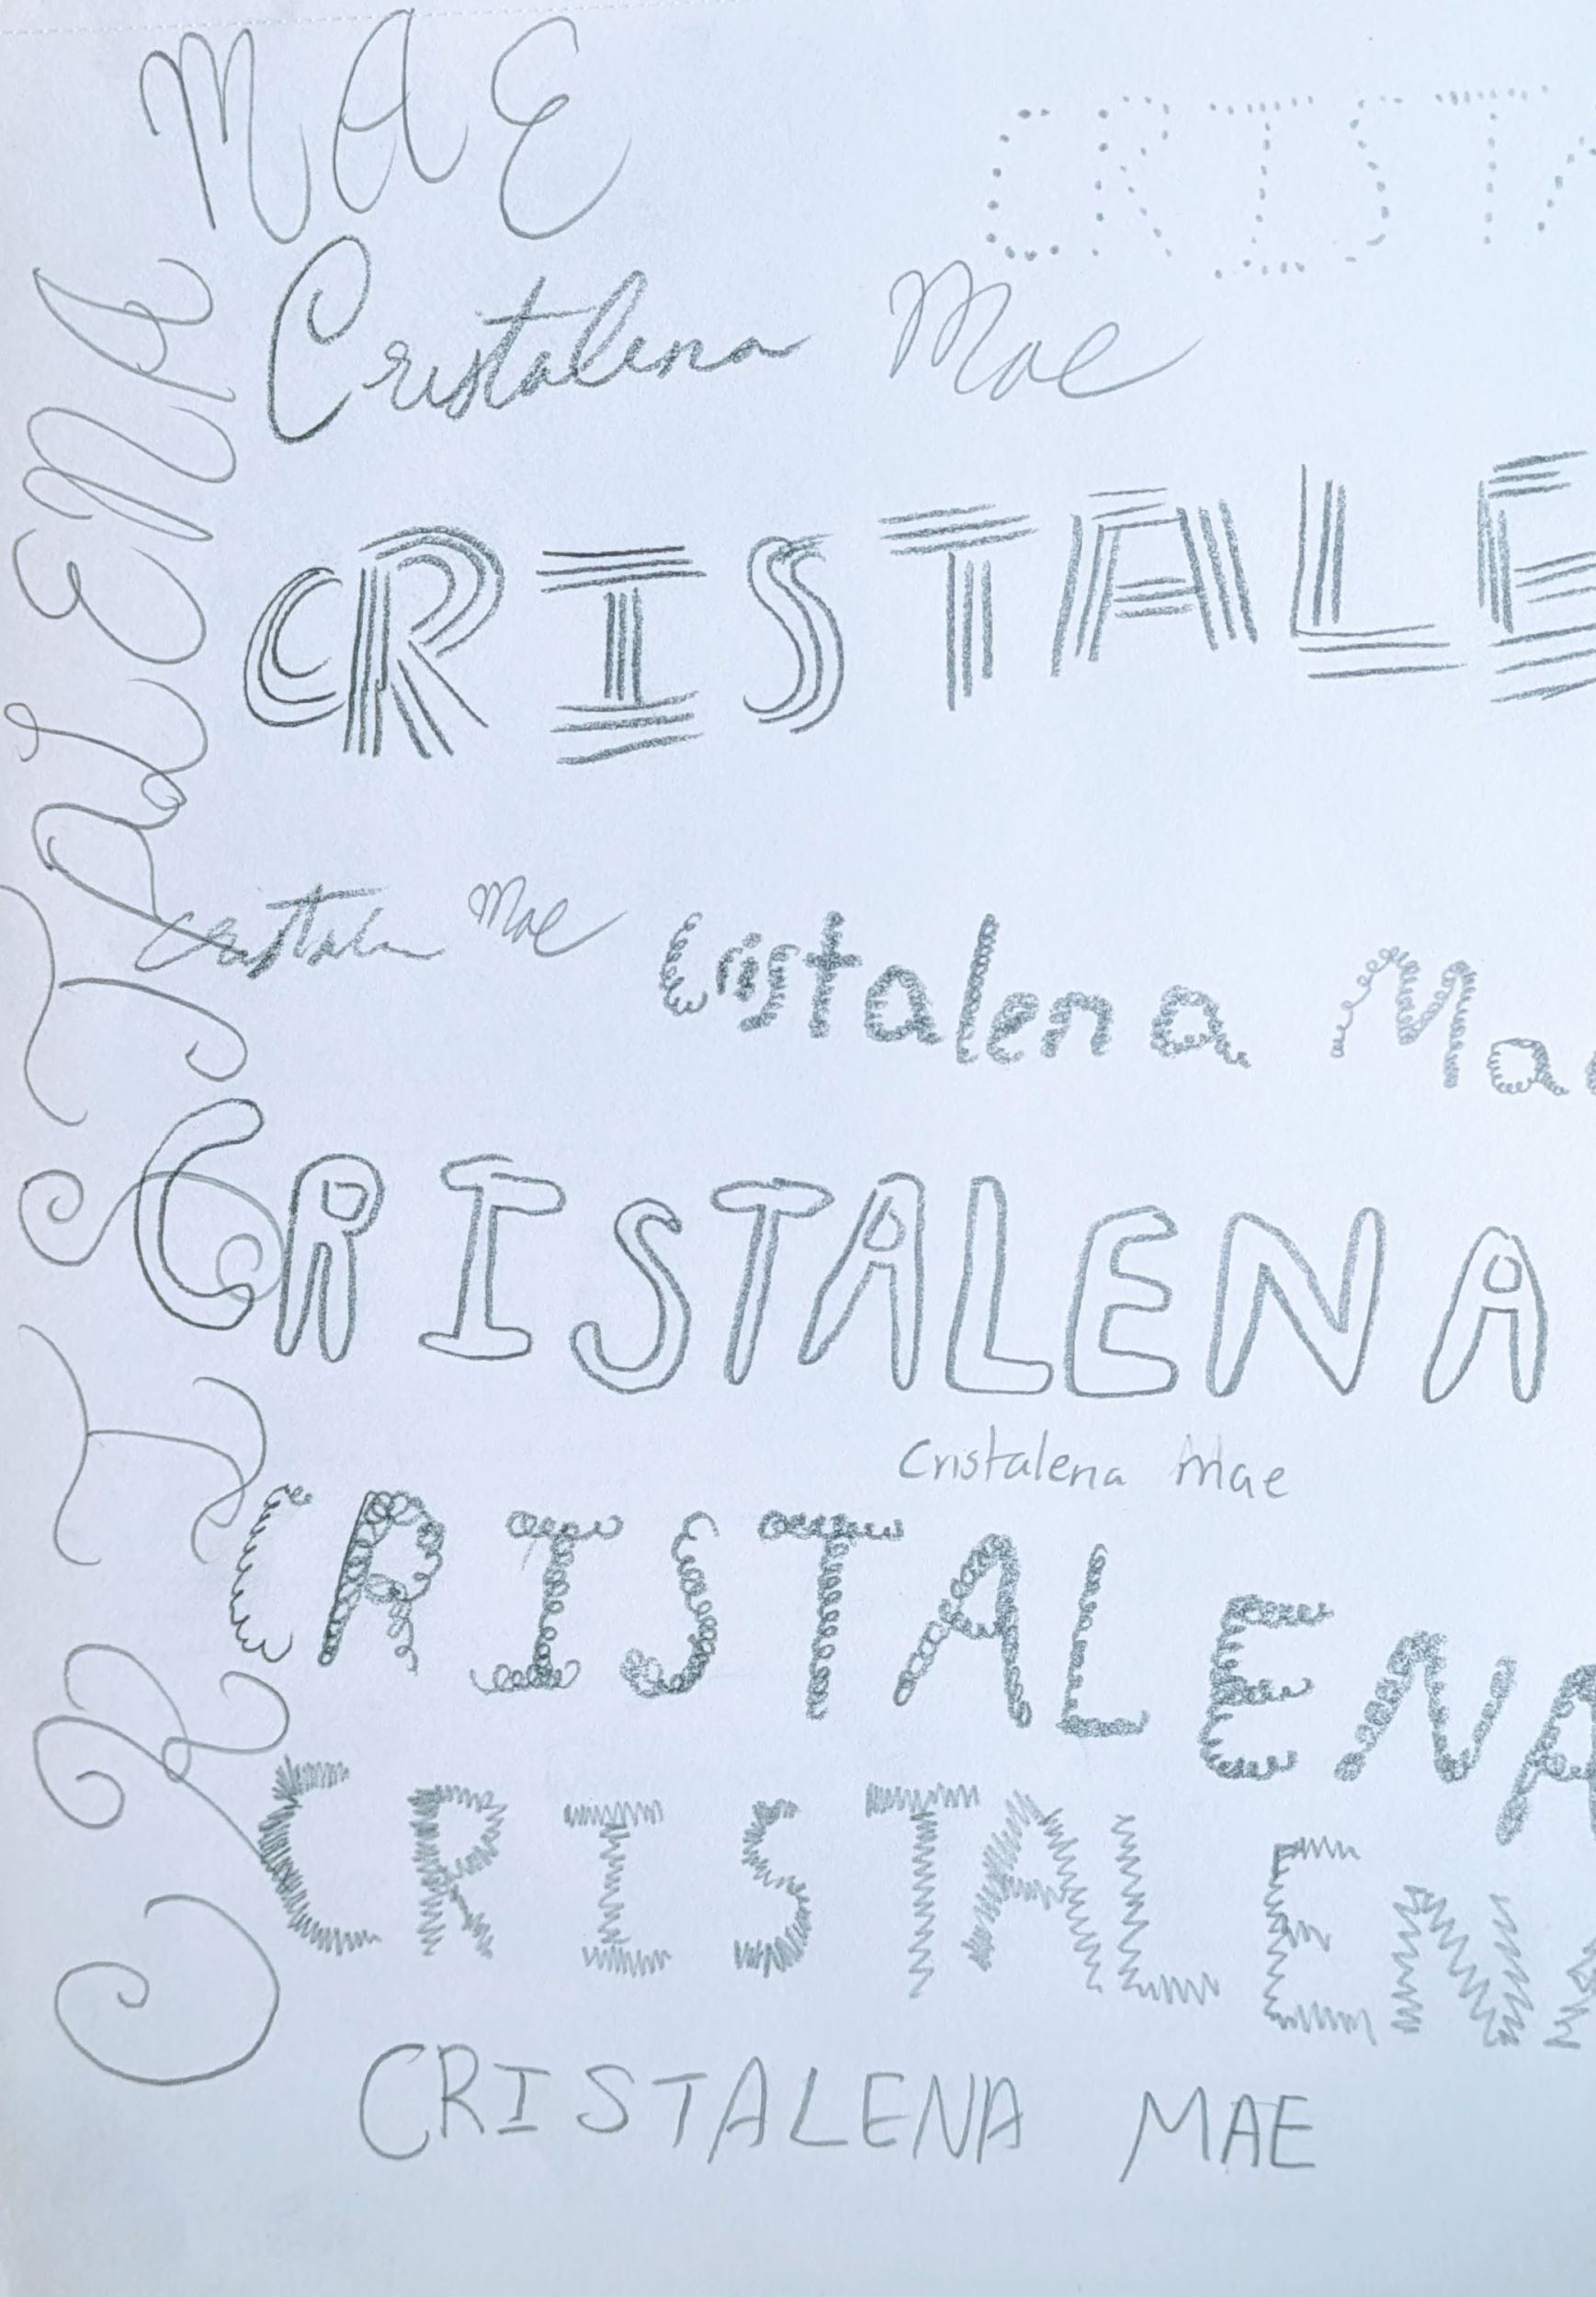 MAE
CRISTA
Cristalena Mae
CRISTALE
Cristalen Mae
Cristalena Ma
CRISTALENA
Cristalena Mae
CRISTALENA
CRISTALENA
CRISTALENA MAE
CRISTALENA